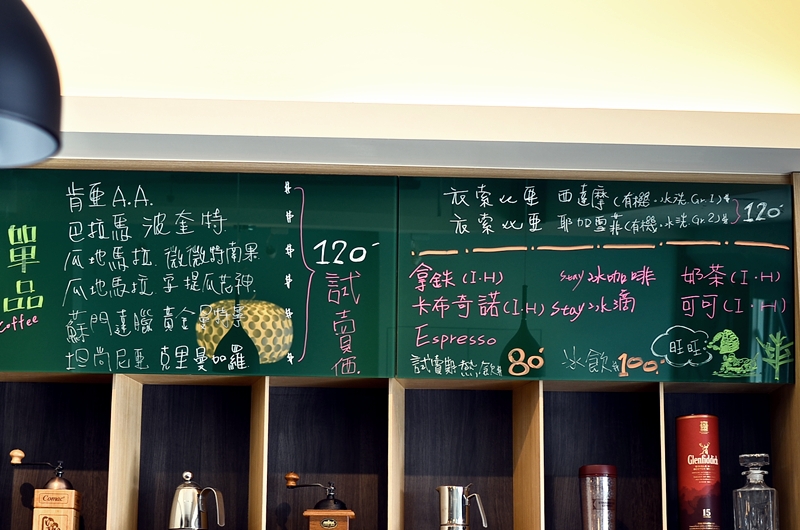 單品
Coffee
肯亞 A.A. $
巴拉馬 波奎特 $
瓜地馬拉 微微特南果 $
瓜地馬拉 安提瓜花神 $
蘇門達臘 黃金曼特寧 $
坦尚尼亞 克里曼加羅 $
120
試賣價
衣索比亞 西達摩(有機·水洗 Gr.1)
衣索比亞 耶加雪菲(有機·水洗 Gr.2)
120
拿鐵(I.H) stay冰咖啡 奶茶(I.H)
卡布奇諾(I.H) stay冰滴 可可(I.H)
Espresso
試賣期熱飲 80 冰飲 100
旺旺
Glenfiddich
15